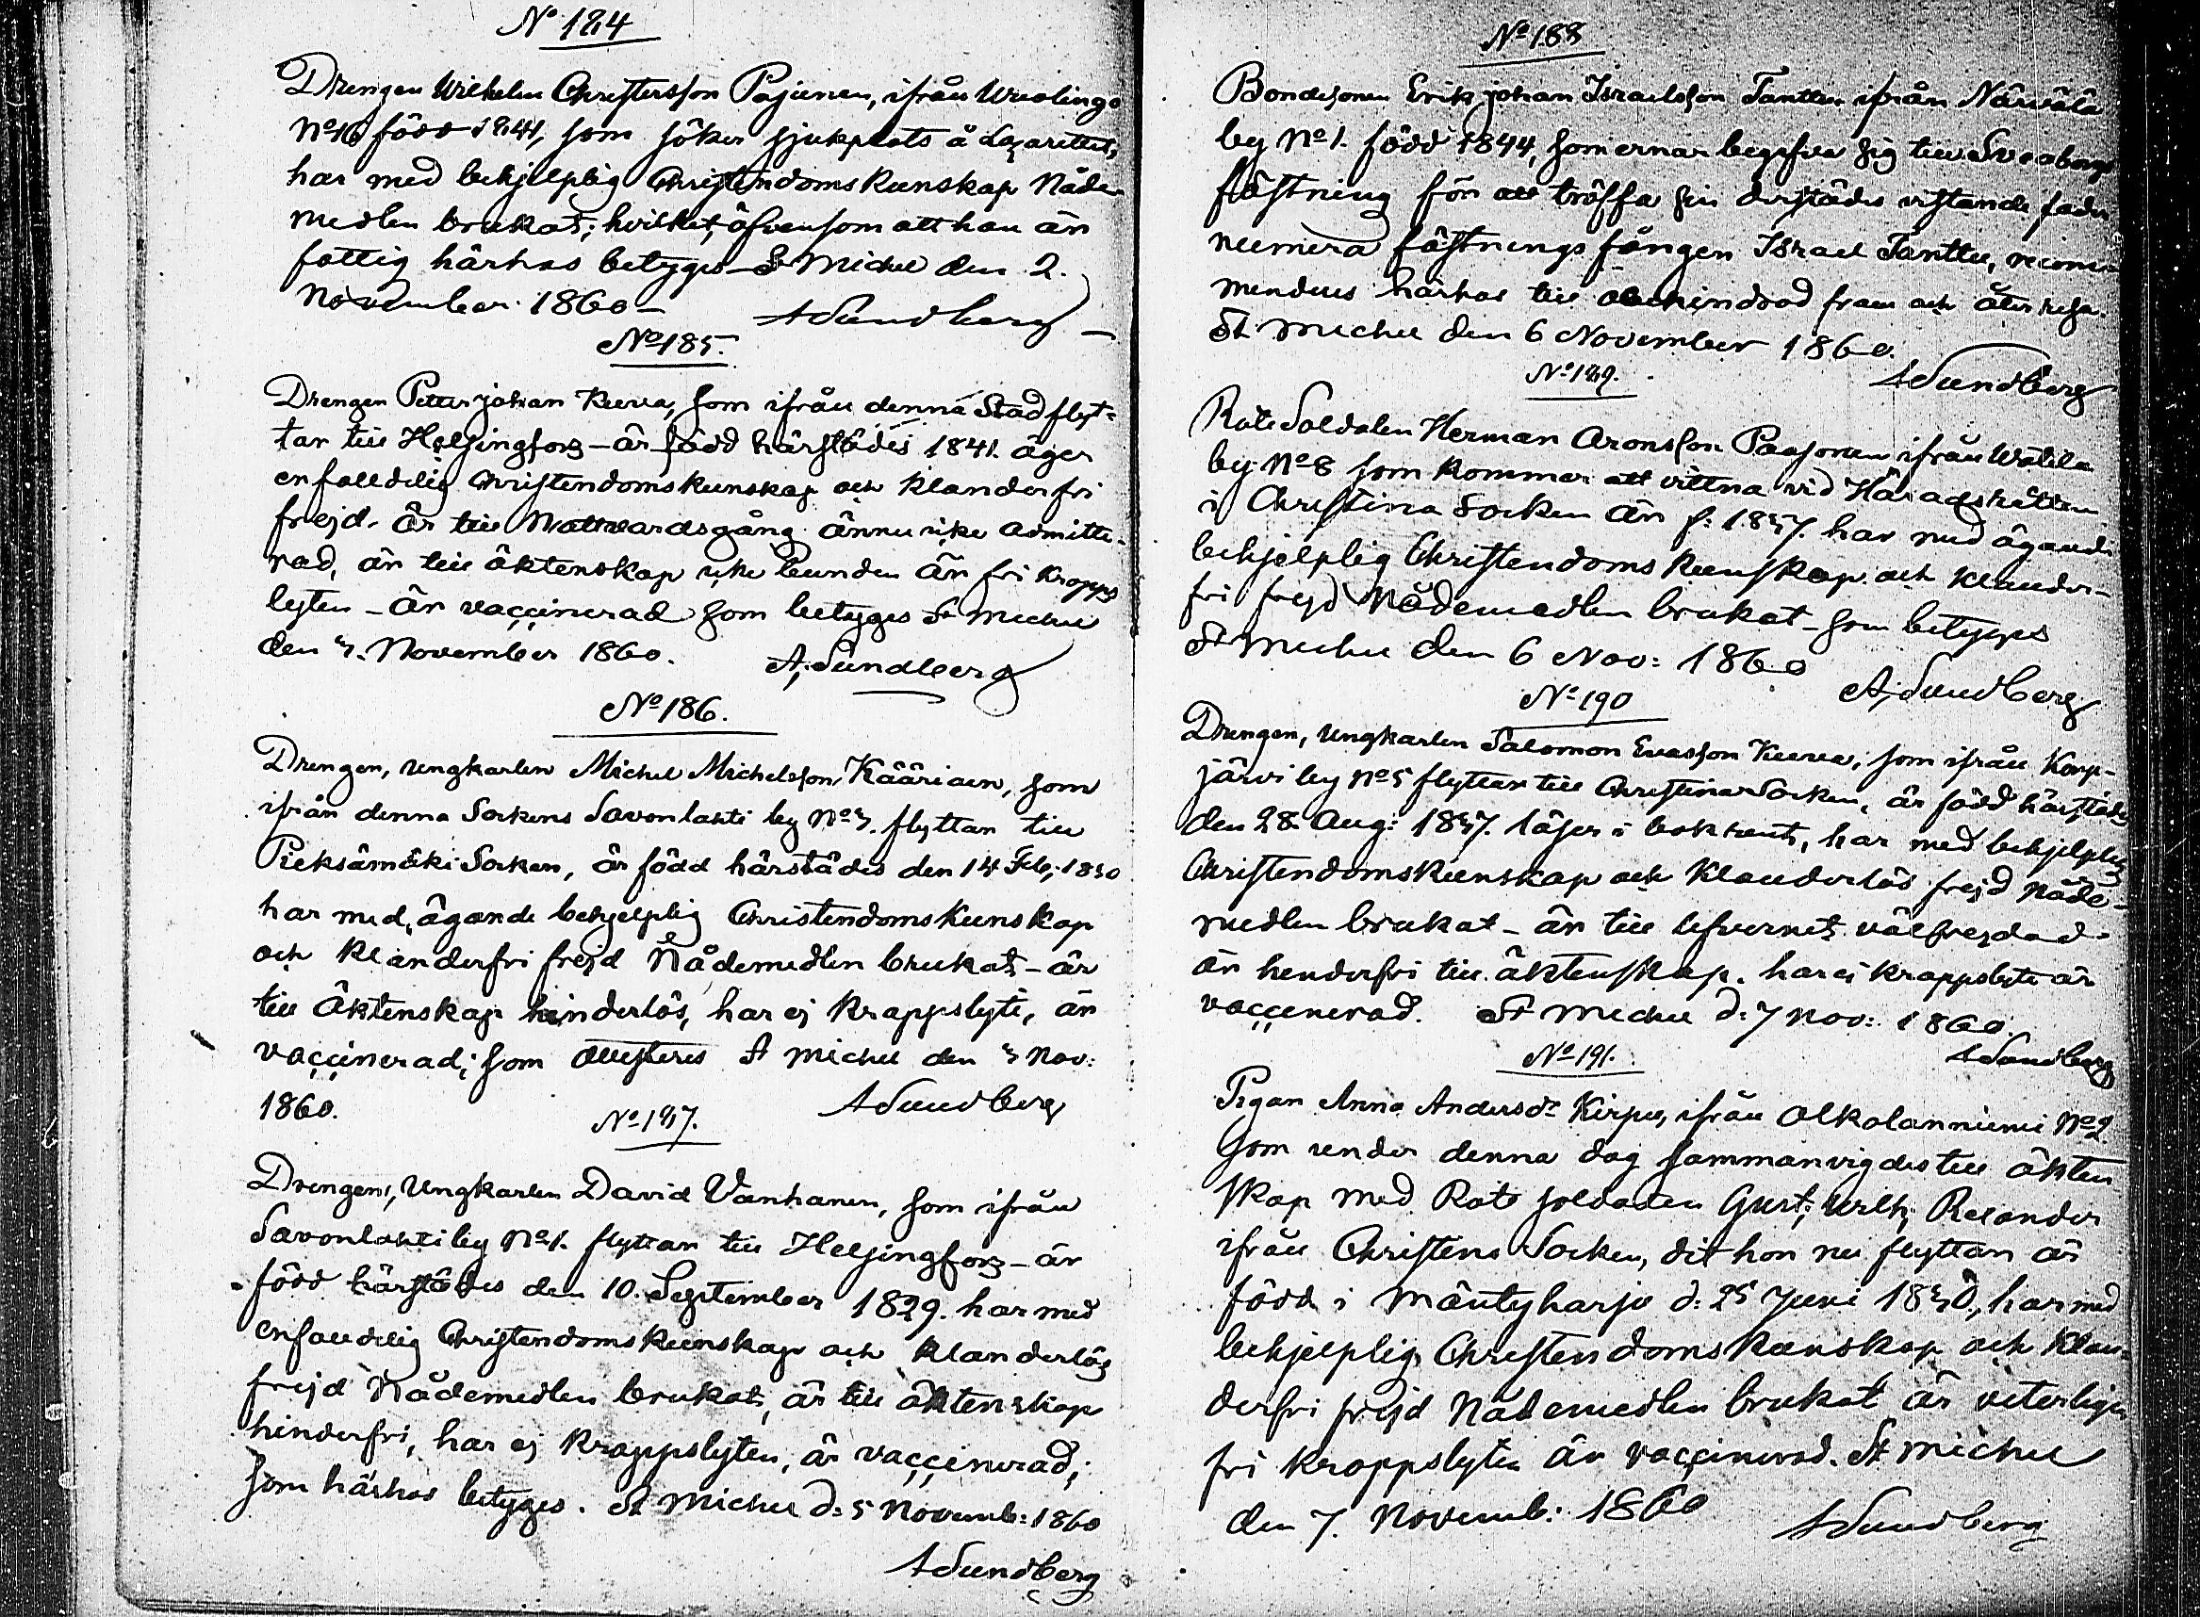 No 184
Drengen Wilhelm Christersson Pajunen, ifrån Wuolingo
No 16 född 1841, som söker sjukplats å Lazarettet,
har med behjelplig Christendoms kunskap Nåde-
medlen brukat; hvilket, äfvensom att han är
fattig härhos betyges St Michel den 2.
November 1860 ASundberg
No 185.
Drengen Petter johan Kurva, som ifrån denna Stad flyt-
tar till Helsingfors – är född härstädes 1841. äger
enfalldelig Christendomskunskap och klanderfri
frejd. är till Nattvardsgång ännu icke admitte-
rad, är till äktenskap icke bunden är fri kropps
lyten – är vaccinerad som betyges St Michel
den 3. November 1860. A. Sundberg
No 186.
Drengen, ungkarlen Michel Michelsson Kääriäen, som
ifrån denna Sockens Savonlahti by No 3. flyttar till
Pieksämäki Socken, är född härstädes den 14 Feb. 1830
har med, ägande behjelplig Christendoms Kunskap
och klanderfri frejd Nådemedlen brukat – är
till Äktenskap hinderlös, har ej kroppslyte, är
vaccinerad; som attesteres St Michel den 3 Nov:
1860. ASundberg
No 187.
Drengen, Ungkarlen David Vanhanen, som ifrån
Savonlahti by No 1. flyttar till Helsingfors – är
född härstädes den 10. September 1829. har med
enfalldelig Christendoms kunskap och klanderlös
frejd Nådemedlen brukat, är till äktenskap
hinderfri, har ej kroppslyten, är vaccinerad;
som härhos betyges. St Michel d: 5 Novemb: 1860
ASundberg
No 188
Bondesonen Erik johan Israelsson Tanttu ifrån Närvälä
by No 1. född 1844, som ernar begifva sig till Sveaborgs
fästning för att träffa sin derstädes vistande fader
numera fästnings fången Israel Tanttu, recom-
menderas härhos till obehindrad fram och återresa.
St Michel den 6 November 1860.
ASundberg
No 189.
Rote Soldaten Herman Aronsson Paasonen ifrån Wätilä
by No 8 som kommer att vittna vid Häradsrätten
i Christina Socken är f: 1837. har med ägande
behjelplig Christendoms kunskap och klander-
fri frejd Nådemedlen brukat – som betyges
St Michel den 6 Nov: 1860 A. Sundberg
No 190
Drengen, ungkarlen Salomon Evasson Kurva, som ifrån Korp-
järvi by No 5 flyttar till Christina Socken, är född härstädes
den 28. Aug: 1837. läser i bok rent, har med behjelplig
Christendomskunskap och klanderlös frejd Nåde-
medlen brukat – är till lefvernet välfrejdad.
är henderfri till äktenskap. har ej kroppslyte är
vaccenerad. St Michel d: 7 Nov: 1860.
ASundberg
No 191.
Pigan Anna Andersdr Kirpu, ifrån Olkolanniemi No 2
som under denna dag sammanvigdes till äkten
skap med Rote soldaten Gust: Wilh: Relander
ifrån Christena Socken, dit hon nu flyttar är
född i Mäntyharju d: 25 Juni 1830, har med
behjelplig Christendoms kunskap och Klan-
derfri frejd Nådemedlen brukat är veterligen
fri kroppslyten är vaccinerad. St Michel
den 7. Novemb: 1860 ASundberg